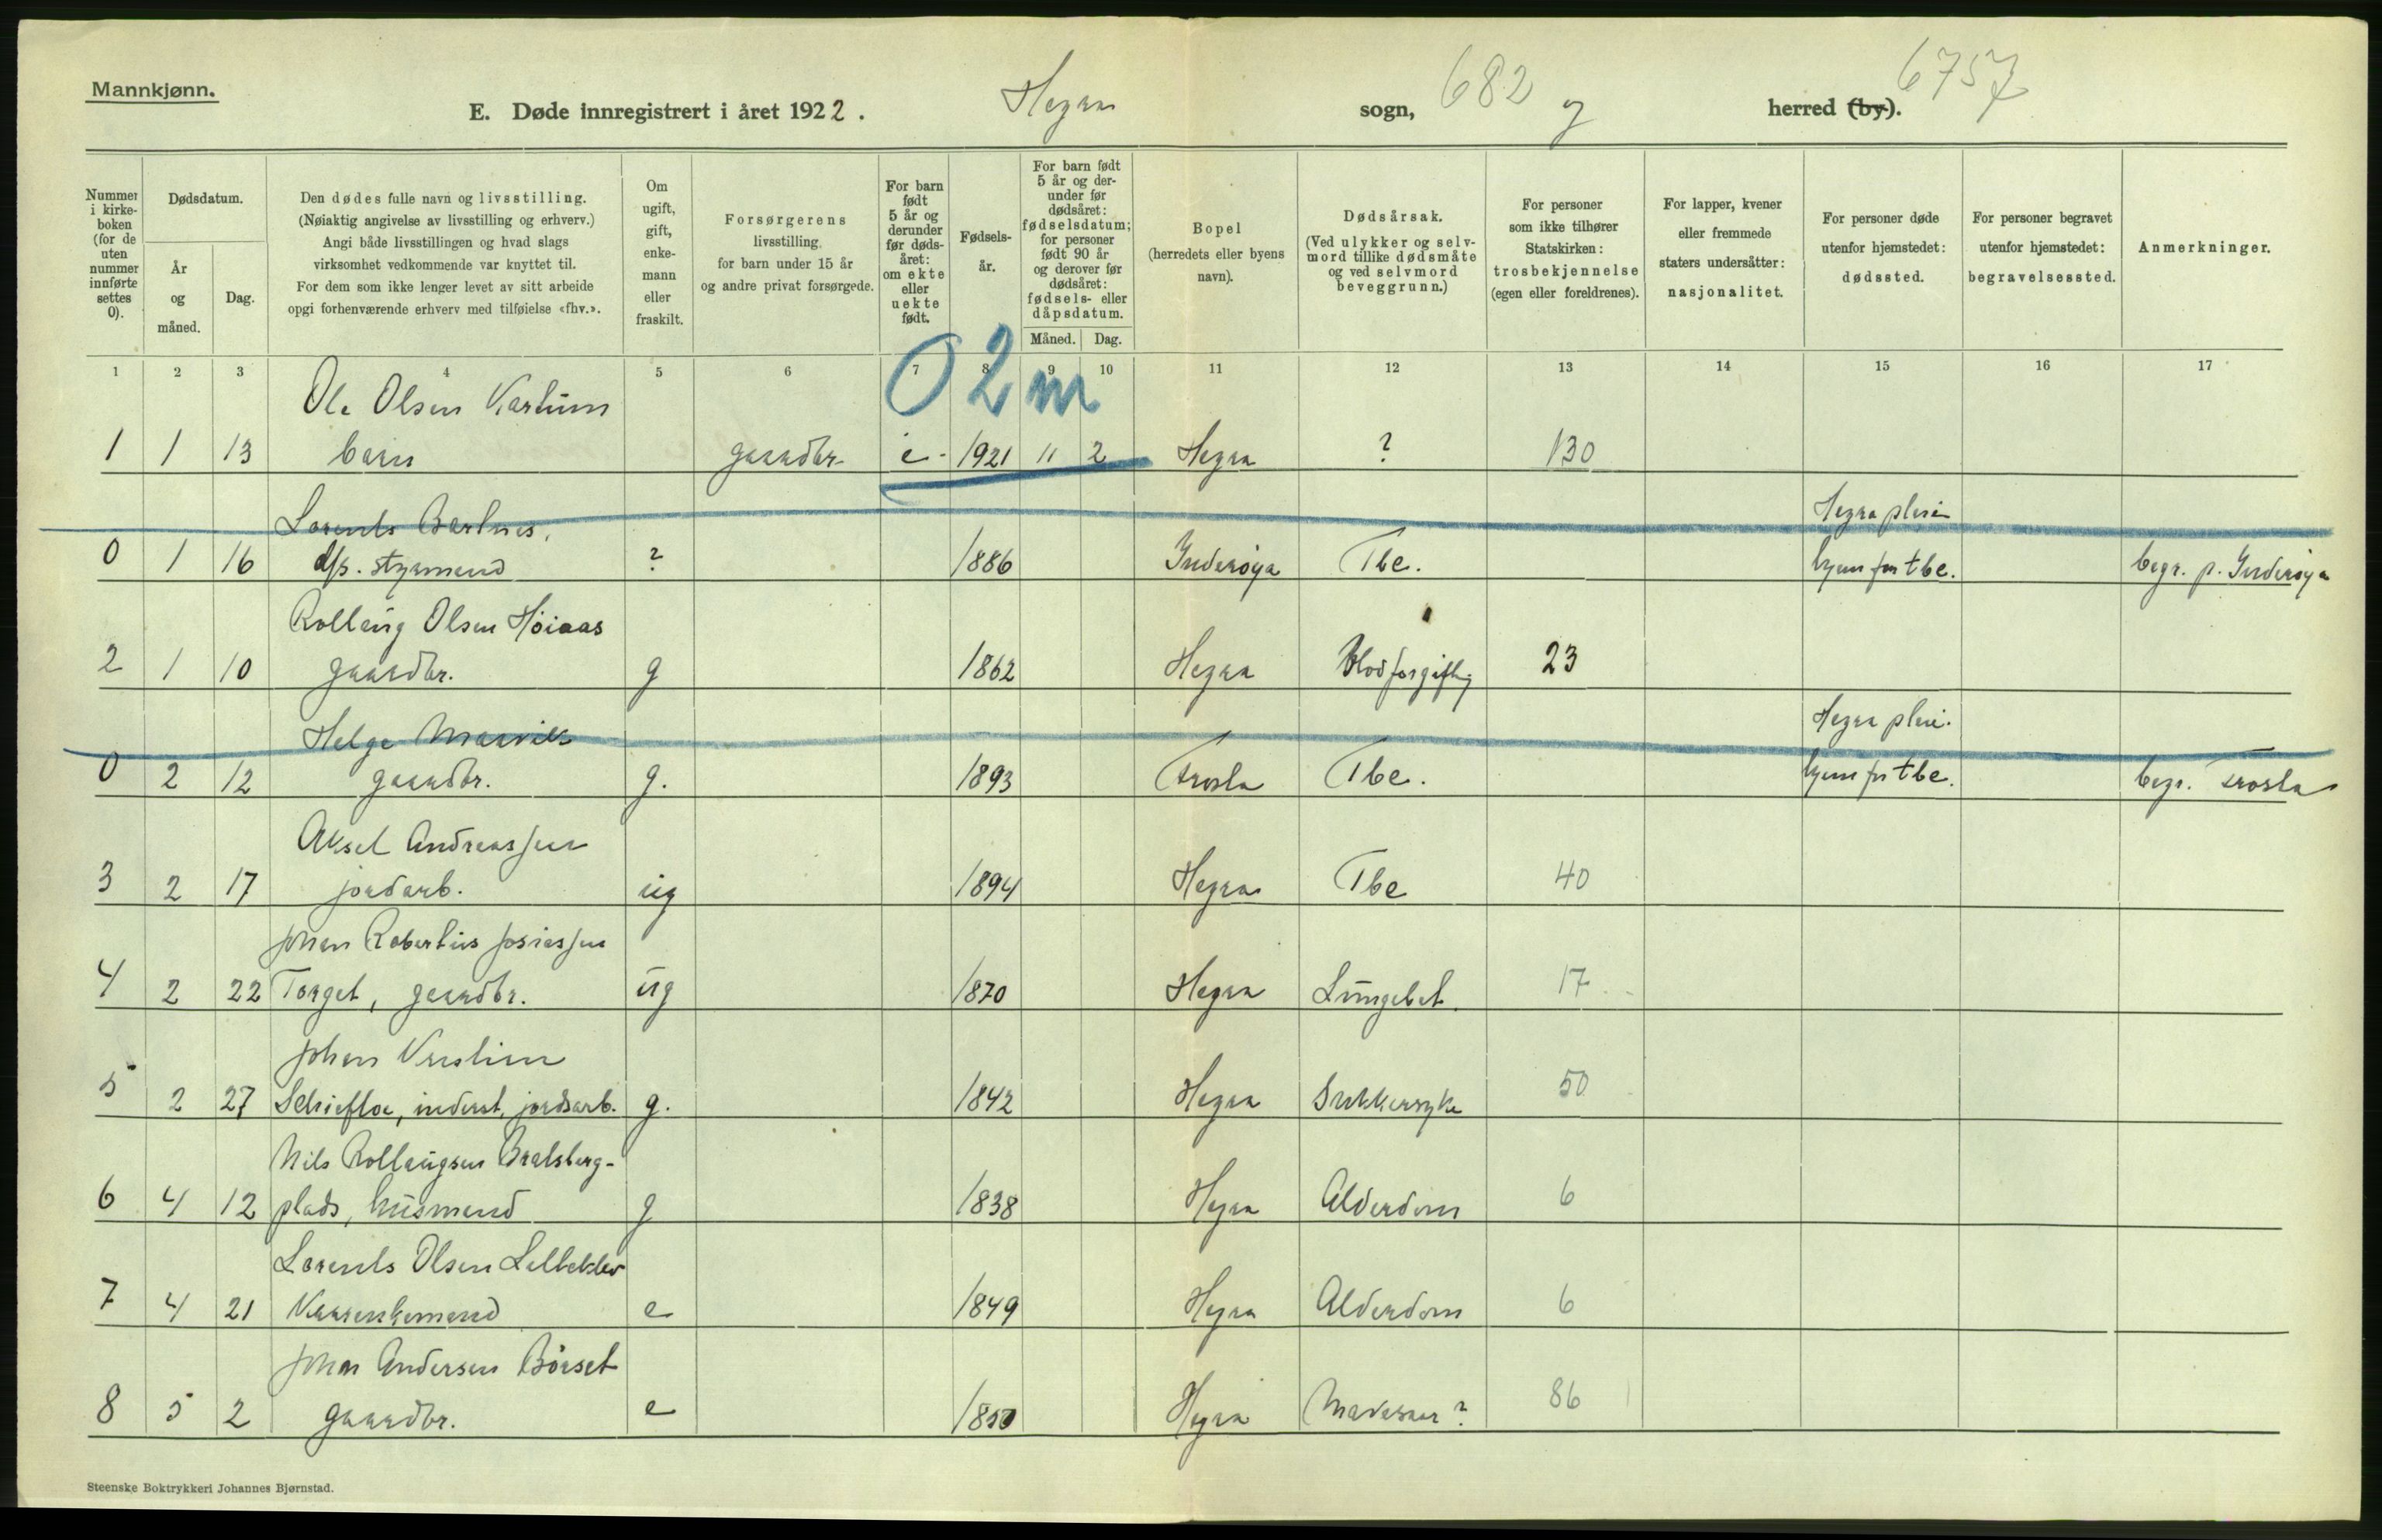 Mannkjønn.
E. Døde innregistrert i året 1922. Hegra sogn, 682 og herred (by). 6757
Nummer i kirke-boken (for de uten nummer innførte settes 0).
Dødsdatum.
År og måned.
Dag.
Den dødes fulle navn og livsstilling.
(Nøiaktig angivelse av livsstilling og erhverv.)
Angi både livsstillingen og hvad slags
virksomhet vedkommende var knyttet til.
For dem som ikke lenger levet av sitt arbeide
opgi forhenværende erhverv med tilføielse «fhv.».
Om ugift, gift, enke-mann eller fraskilt.
Forsørgerens
livsstilling
for barn under 15 år
og andre privat forsørgede.
For barn født 5 år og derunder før døds-året: om ekte eller uekte født.
Fødsels-år.
For barn født 5 år og der-under før dødsåret: fødselsdatum; for personer født 90 år og derover før dødsåret: fødsels- eller dåpsdatum.
Måned. Dag.
Bopel
(herredets eller byens
navn).
Dødsårsak.
(Ved ulykker og selv-
mord tillike dødsmåte
og ved selvmord
beveggrunn.)
For personer
som ikke tilhører
Statskirken:
trosbekjennelse
(egen eller foreldrenes).
For lapper, kvener
eller fremmede
staters undersåtter:
nasjonalitet.
For personer døde
utenfor hjemstedet:
dødssted.
For personer begravet
utenfor hjemstedet:
begravelsessted.
Anmerkninger.
1 2 3 4 5 6 7 8 9 10 11 12 13 14 15 16 17
02 m
Ole Olsen
1 1 13 barn gaardbr. e. 1921 11 2 Hegra ? 130
Lorents Hegra pleie
0 1 16 d/s. styrmand ? 1886 Inderøya Tbc. hjem for tbc. begr. p. Inderøya
Rollaug Olsen Høiaas
2 1 10 gaardbr. g 1862 Hegra Blodforgiftng 23
Helge Hegra pleie.
0 2 12 gaardbr. g. 1893 Frosta Tbc. hjem for tbc. begr. Frosta
Aksel Andreassen
3 2 17 jordarb. ug 1894 Hegra Tbc 40
Johan Robertus Josiassen
4 2 22 Torget, gaardbr. ug 1870 Hegra Lungebet. 17
Johan
5 2 27 inderst, jordarb. g. 1842 Hegra Sukkersyke 50
Nils Rollaugsen
6 4 12 plads, husmand g 1838 Hegra Alderdom 6
Lorents Olsen
7 4 21 e 1849 Hegra Alderdom 6
Johan Andersen Børset
8 5 2 gaardbr. e 1850 Hegra Mavesaar? 86
Steenske Boktrykkeri Johannes Bjørnstad.